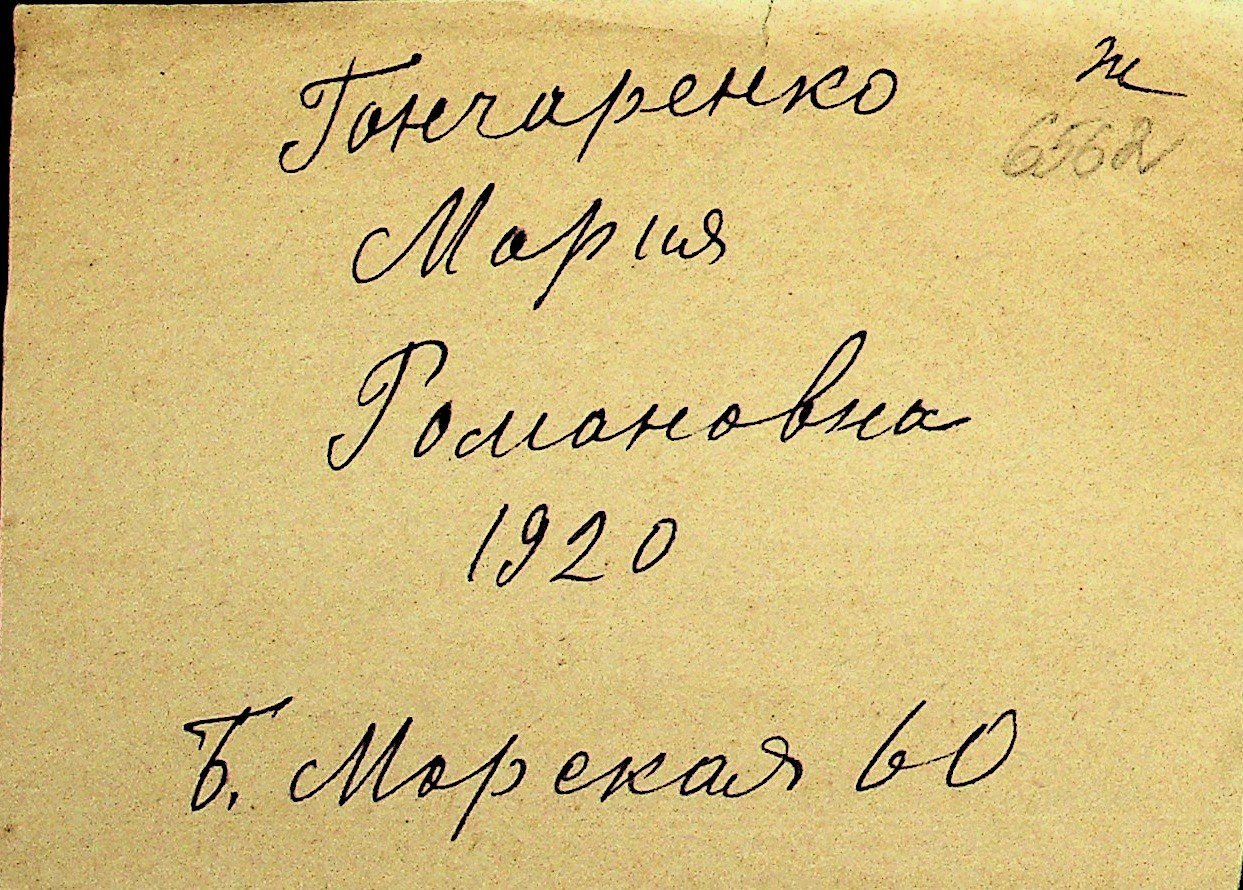 Гончаренко
ж
6562
Мария
Романовна
1920
Б. Морская 60